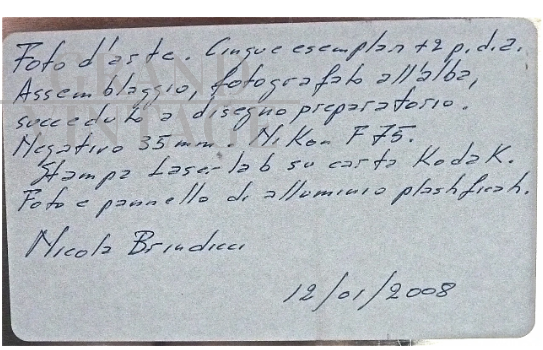 Foto d'arte. Cinque esemplari +2 p.d.a.
Assemblaggio, fotografato all'alba,
succeduto a disegno preparatorio.
Negativo 35 mm. Nikon F75.
Stampa Laser-lab su carta Kodak.
Foto e pannello di alluminio plastificati.
Nicola Brindicci
12/01/2008
GRAND
VINTAGE